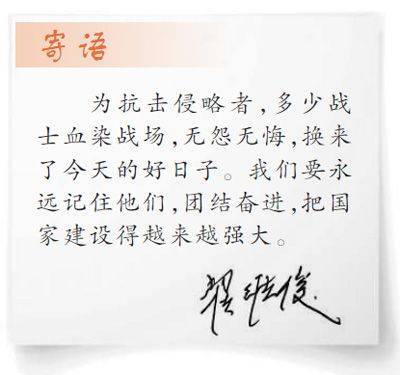 寄语
为抗击侵略者,多少战
士血染战场,无怨无悔,换来
了今天的好日子。我们要永
远记住他们,团结奋进,把国
家建设得越来越强大。
翟维俊